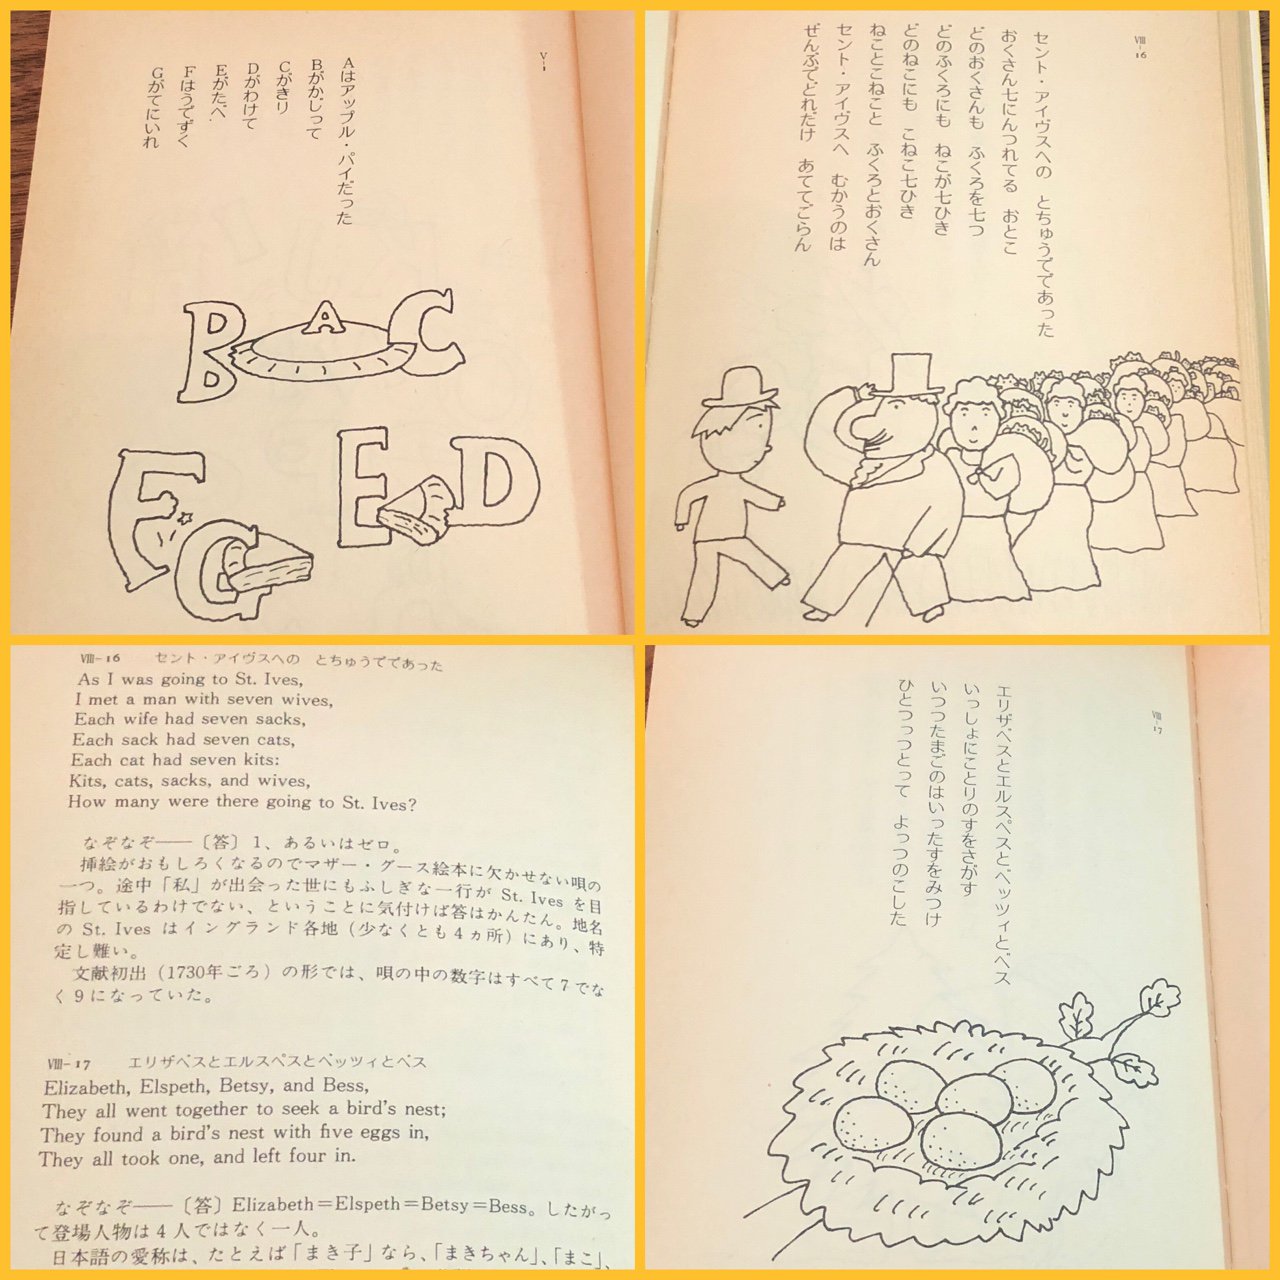 V-1
Aはアップル・パイだった
Bがかじって
Cがきり
Dがわけて
Eがたべ
Fはうでずく
Gがてにいれ
B A C
E D
F G
VIII-16
セント・アイヴスへの とちゅうでであった
おくさん七にんつれてる おとこ
どのおくさんも ふくろを七つ
どのふくろにも ねこが七ひき
どのねこにも こねこ七ひき
ねことこねこと ふくろとおくさん
セント・アイヴスへ むかうのは
ぜんぶでどれだけ あててごらん
VIII-16 セント・アイヴスへの とちゅうでであった
As I was going to St. Ives,
I met a man with seven wives,
Each wife had seven sacks,
Each sack had seven cats,
Each cat had seven kits:
Kits, cats, sacks, and wives,
How many were there going to St. Ives?
なぞなぞ——〔答〕1、あるいはゼロ。
挿絵がおもしろくなるのでマザー・グース絵本に欠かせない唄の
一つ。途中「私」が出会った世にもふしぎな一行が St. Ives を目
指しているわけでない、ということに気付けば答はかんたん。地名
の St. Ives はイングランド各地（少なくとも4ヵ所）にあり、特
定し難い。
文献初出（1730年ごろ）の形では、唄の中の数字はすべて7でな
く9になっていた。
VIII-17 エリザベスとエルスペスとベッツィとベス
Elizabeth, Elspeth, Betsy, and Bess,
They all went together to seek a bird's nest;
They found a bird's nest with five eggs in,
They all took one, and left four in.
なぞなぞ——〔答〕Elizabeth＝Elspeth＝Betsy＝Bess。したがっ
て登場人物は4人ではなく一人。
日本語の愛称は、たとえば「まき子」なら、「まきちゃん」、「まこ」、
VIII-17
エリザベスとエルスペスとベッツィとベス
いっしょにことりのすをさがす
いつつたまごのはいったすをみつけ
ひとつっつとって よっつのこした